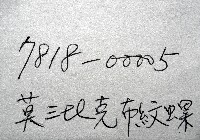 7818-00005
莫三比克布紋螺